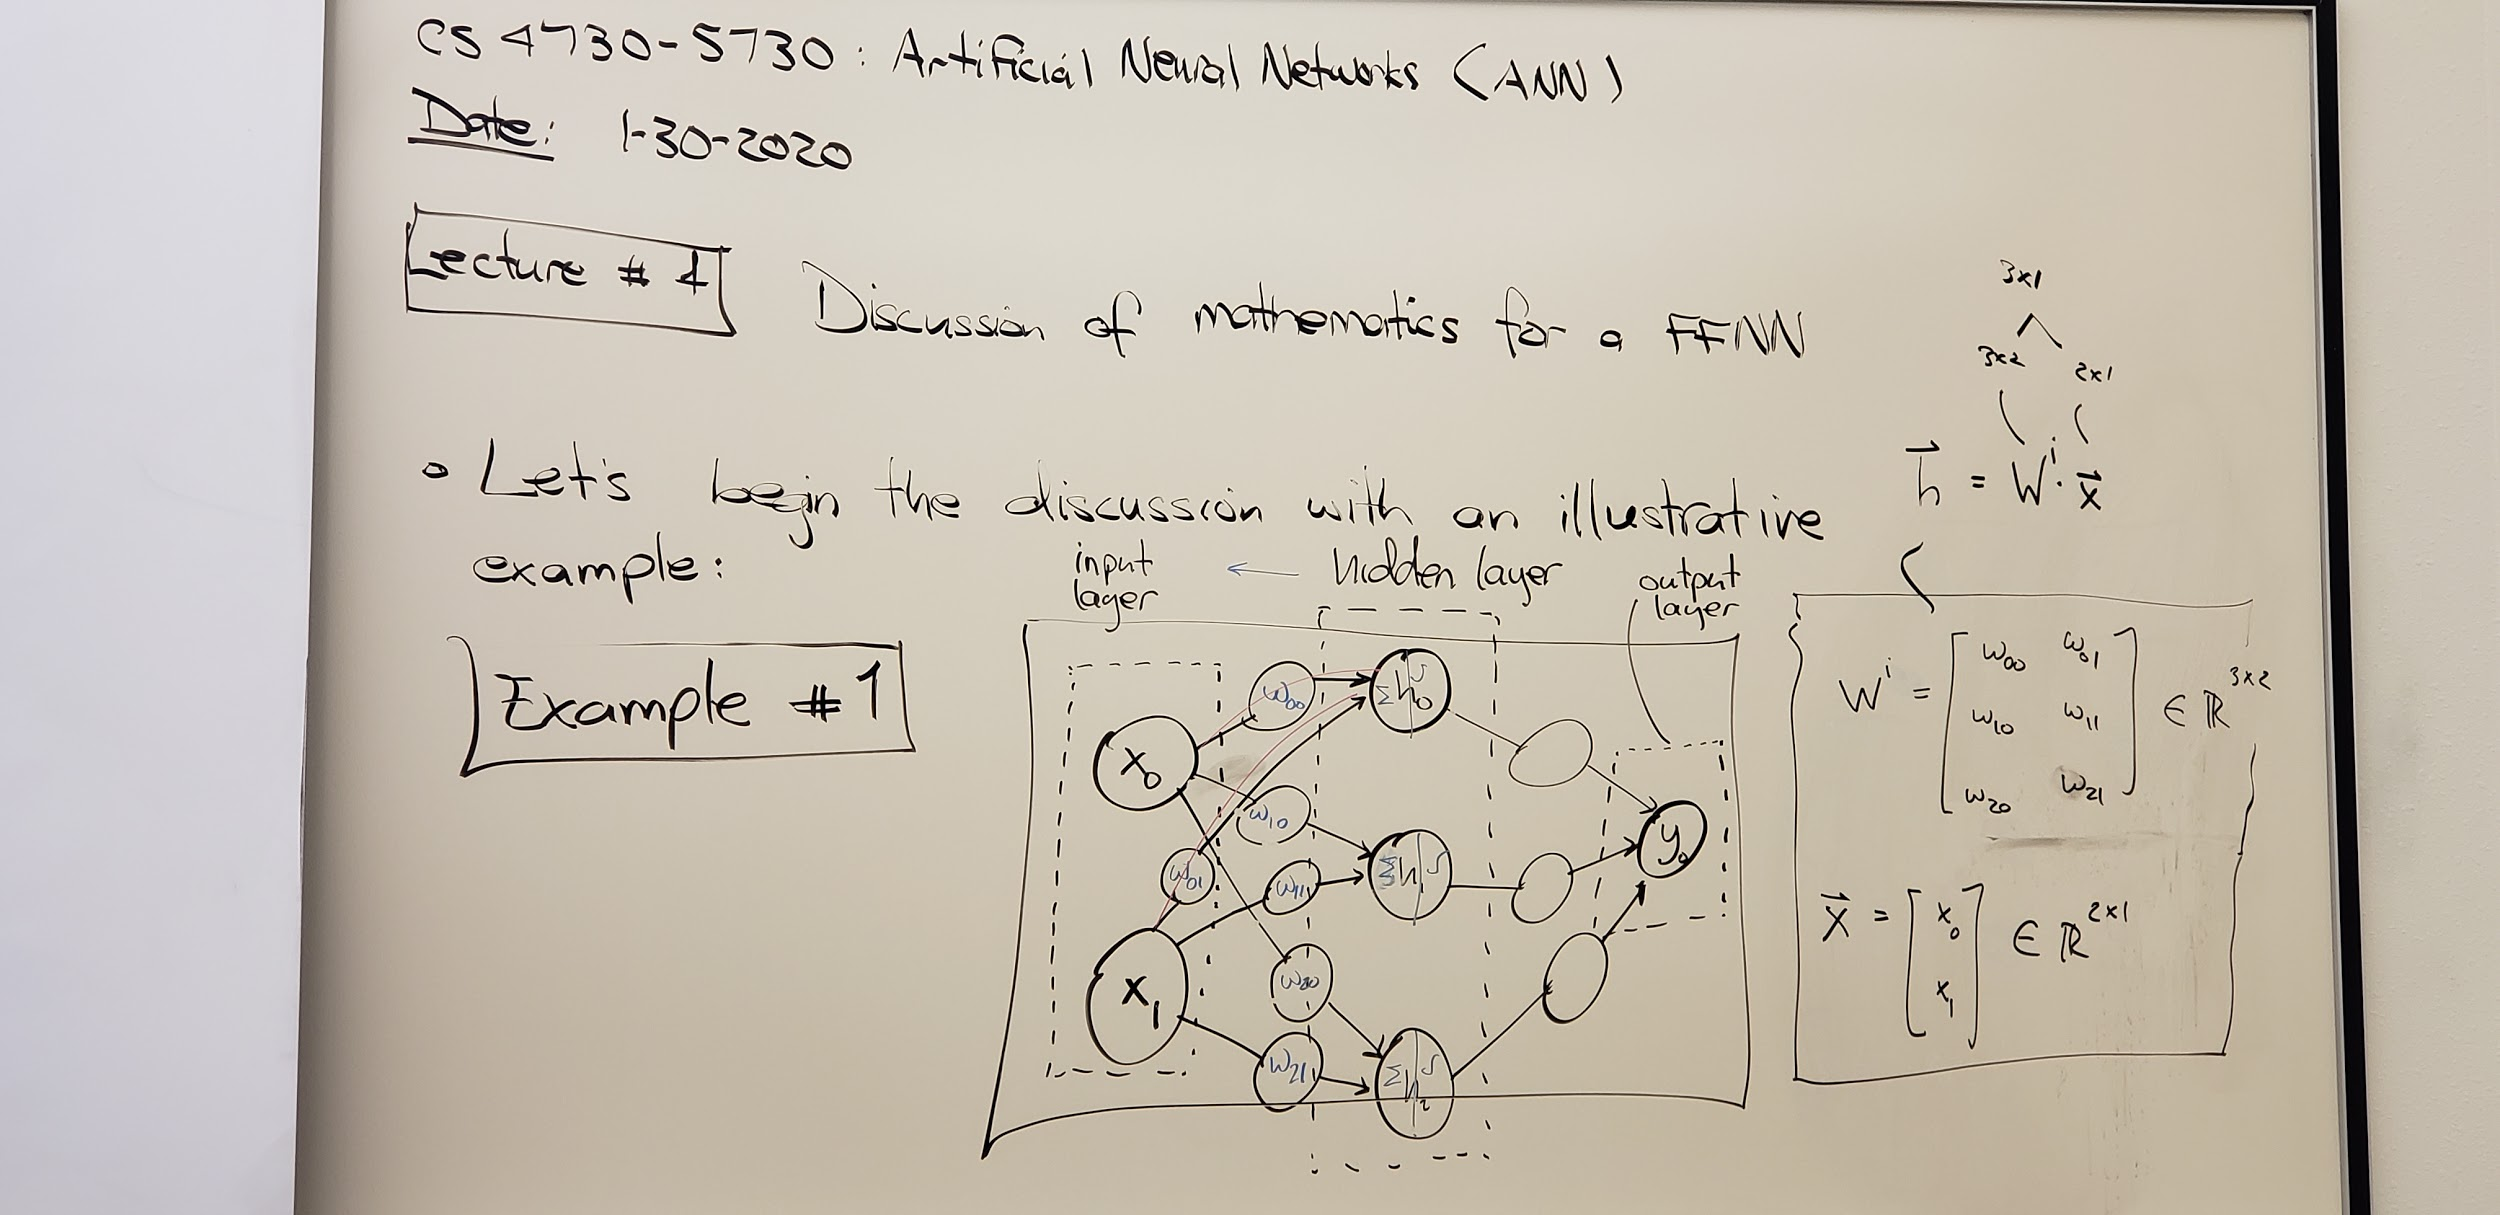 CS 4730-5730: Artificial Neural Networks (ANN)
Date: 1-30-2020
Lecture # 4
Discussion of mathematics for a FFNN
3x1
3x2 2x1
h = Wⁱ · x
• Let's begin the discussion with an illustrative
example:
input layer
← hidden layer
output layer
Example #1
x₀
x₁
w₀₀
w₁₀
w₀₁
w₁₁
w₂₀
w₂₁
Σ h₀ ∫
Σ h₁ ∫
Σ h₂ ∫
y₀
Wⁱ = [ w₀₀ w₀₁
w₁₀ w₁₁
w₂₀ w₂₁ ] ∈ ℝ³ˣ²
x = [ x₀
x₁ ] ∈ ℝ²ˣ¹